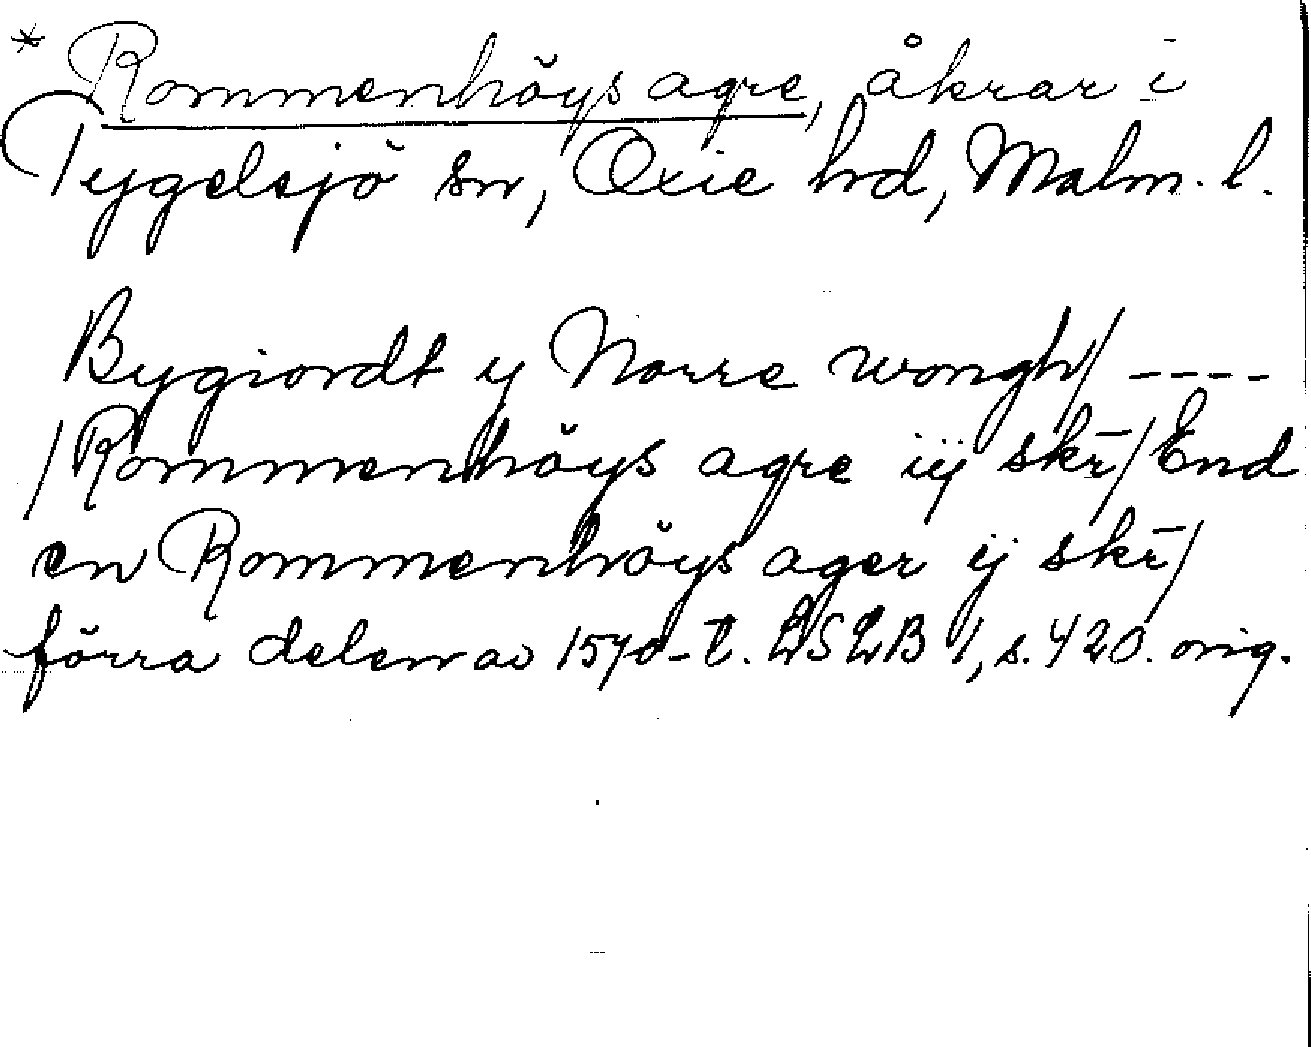 * Rommenhöys agre, åkrar i
Tygelsjö sn, Oxie hd, Malm. l.
Bygiordt y Norre wongh/ ----
/Rommenhöys agre iij skr̄/ End
en Rommenhöys ager ij skr̄/
förra delen av 1570-t. LSLB 1, s. 420. orig.